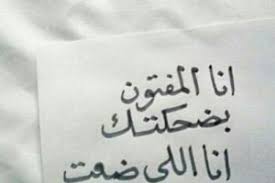 انا المفتون
بضحكتك
انا اللي ضعت